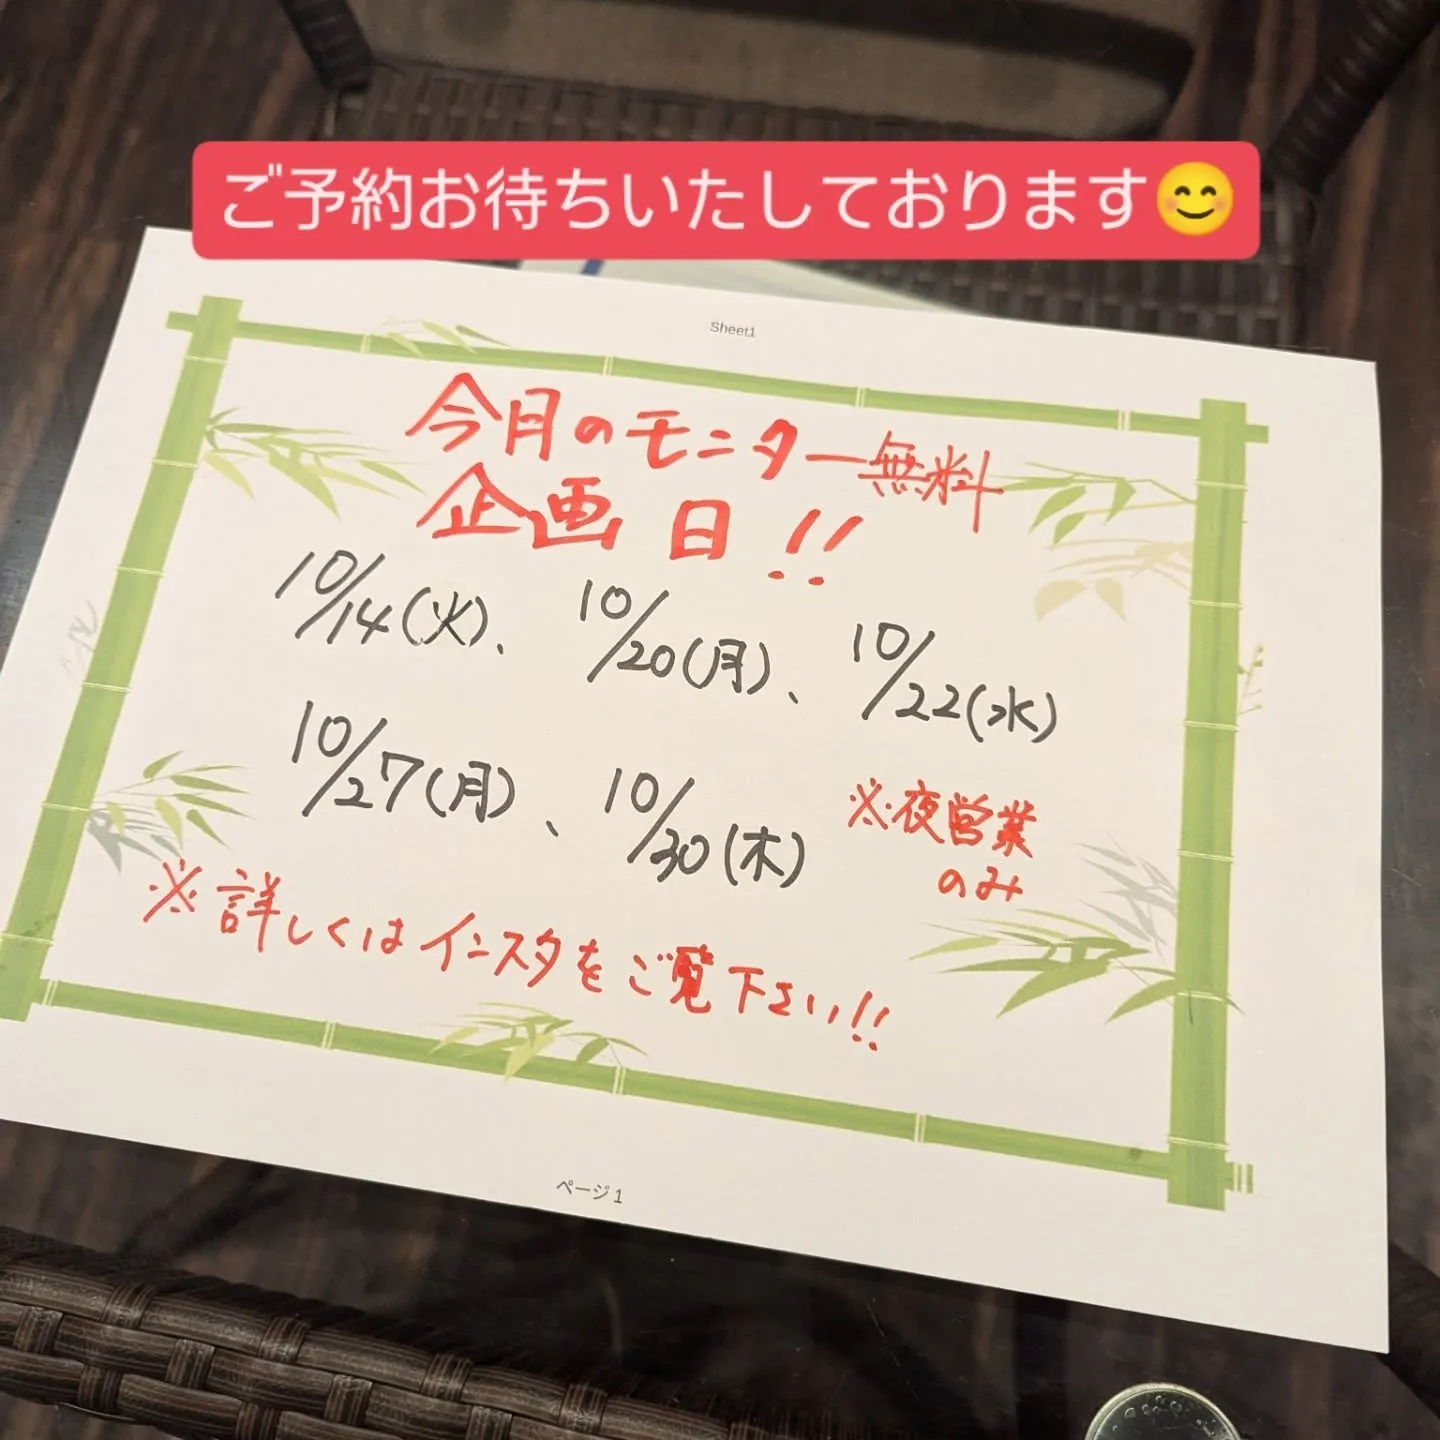 ご予約お待ちいたしております😊
Sheet1
今月のモニター無料
企画日!!
10/14(火)、10/20(月)、10/22(水)
10/27(月)、10/30(木)
※夜営業
のみ
※詳しくはインスタをご覧下さい!!
ページ 1